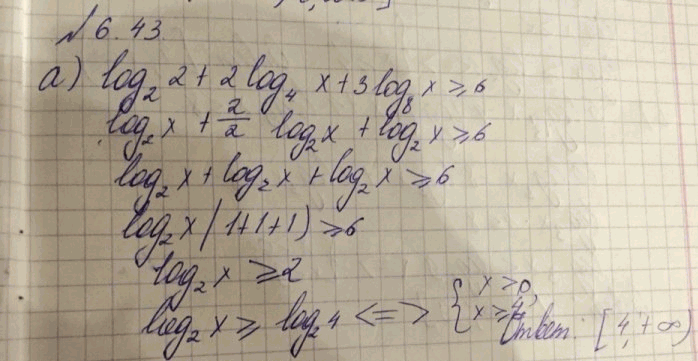 № 6.43
а) log₂ 2 + 2 log₄ x + 3 log₈ x ≥ 6
log₂ x + 2/2 log₂ x + log₂ x ≥ 6
log₂ x + log₂ x + log₂ x ≥ 6
log₂ x (1+1+1) ≥ 6
log₂ x ≥ 2
log₂ x ≥ log₂ 4 <=> { x > 0, x ≥ 4, Ответ: [4, +∞)